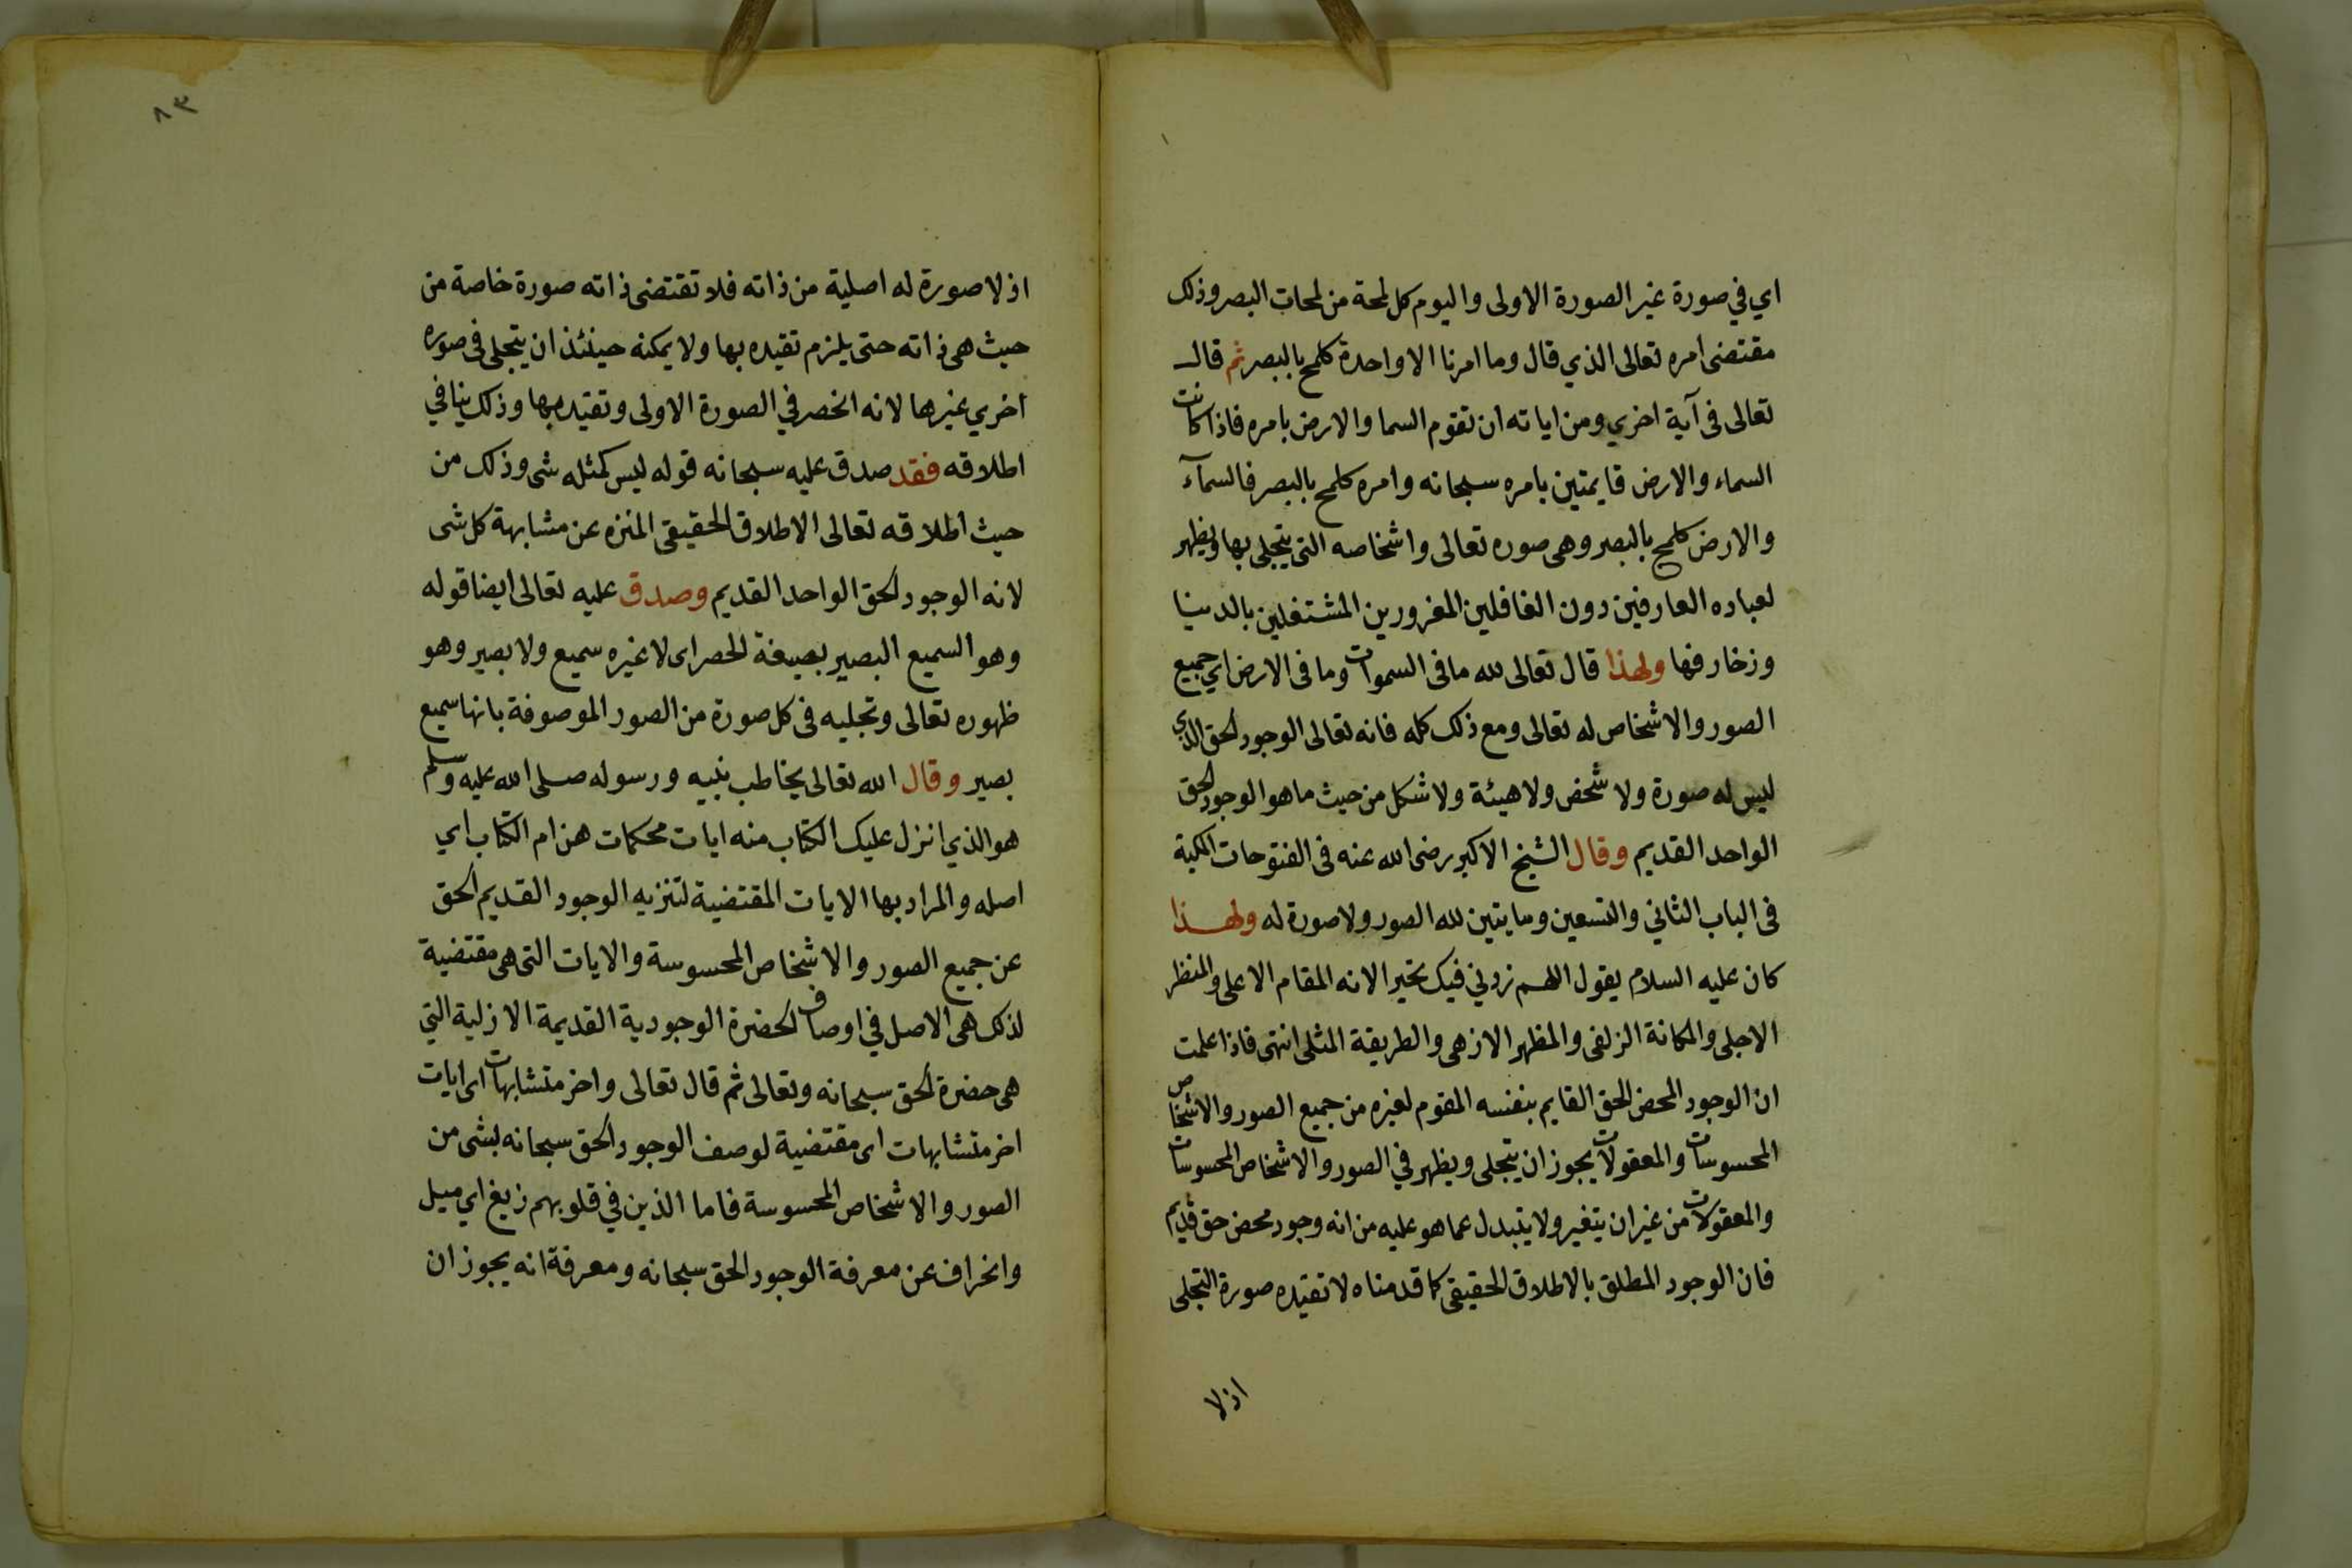 اي في صورة غير الصورة الاولى واليوم كل لمحة من لمحات البصر وذلك
مقتضى امره تعالى الذي قال وما امرنا الا واحدة كلمح بالبصر ثم قال
تعالى فى آية اخري ومن اياته ان تقوم السما والارض بامره فاذا كانت
السماء والارض قايمتين بامره سبحانه وامره كلمح بالبصر فالسمآء
والارض كلمح بالبصر وهى صوره تعالى واشخاصه التى يتجلى بها ويظهر
لعباده العارفين دون الغافلين المغرورين المشتغلين بالدنيا
وزخارفها ولهذا قال تعالى لله ما فى السموات وما فى الارض اي جميع
الصور والاشخاص له تعالى ومع ذلك كله فانه تعالى الوجود الحق الذي
ليس له صورة ولا شخص ولا هيئة ولا شكل من حيث ما هو الوجود الحق
الواحد القديم وقال الشيخ الاكبر رضى الله عنه فى الفتوحات المكية
فى الباب الثاني والتسعين ومايتين لله الصور ولا صورة له ولهذا
كان عليه السلام يقول اللهم زدني فيك تحيرا لانه المقام الاعلى والمنظر
الاجلى والمكانة الزلفى والمظهر الازهى والطريقة المثلى انتهى فاذا علمت
ان الوجود المحض الحق القايم بنفسه المقوم لغيره من جميع الصور والاشخاص
المحسوسات والمعقولات يجوز ان يتجلى ويظهر في الصور والاشخاص المحسوسات
والمعقولات من غير ان يتغير ولا يتبدل عما هو عليه من انه وجود محض حق قديم
فان الوجود المطلق بالاطلاق الحقيقى كما قدمناه لا تقيده صورة التجلى
اذ لا
٨٣
اذ لا صورة له اصلية من ذاته فلا تقتضى ذاته صورة خاصة من
حيث هى ذاته حتى يلزم تقيده بها ولا يمكنه حينئذ ان يتجلى فى صوره
اخري غيرها لانه انحصر في الصورة الاولى وتقيد بها وذلك ينافي
اطلاقه فقد صدق عليه سبحانه قوله ليس كمثله شى وذلك من
حيث اطلاقه تعالى الاطلاق الحقيقى المنزه عن مشابهة كل شى
لانه الوجود الحق الواحد القديم وصدق عليه تعالى ايضا قوله
وهو السميع البصير بصيغة الحصر اى لا غيره سميع ولا بصير وهو
ظهوره تعالى وتجليه فى كل صورة من الصور الموصوفة بانها سميع
بصير وقال الله تعالى يخاطب نبيه ورسوله صلى الله عليه وسلم
هو الذي انزل عليك الكتاب منه ايات محكمات هن ام الكتاب اي
اصله والمراد بها الايات المقتضية لتنزيه الوجود القديم الحق
عن جميع الصور والاشخاص المحسوسة والايات التى هى مقتضية
لذلك هى الاصل في اوصاف الحضرة الوجودية القديمة الازلية التي
هى حضرة الحق سبحانه وتعالى ثم قال تعالى واخر متشابهات اى ايات
اخر متشابهات اى مقتضية لوصف الوجود الحق سبحانه بشى من
الصور والاشخاص المحسوسة فاما الذين في قلوبهم زيغ اي ميل
وانحراف عن معرفة الوجود الحق سبحانه ومعرفة انه يجوز ان